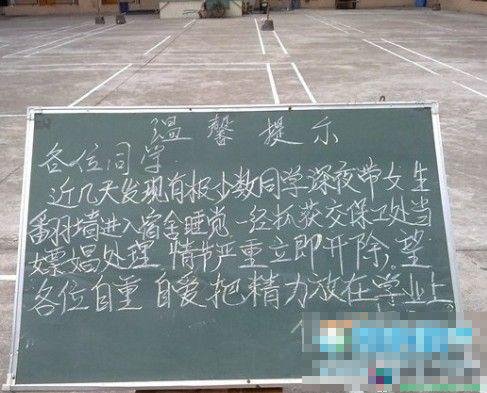 温馨提示
各位同学
近几天发现有极少数同学深夜带女生
翻羽墙进入宿舍睡觉 一经抓获交保卫处当
嫖娼处理 情节严重立即开除,望
各位自重 自爱把精力放在学业上